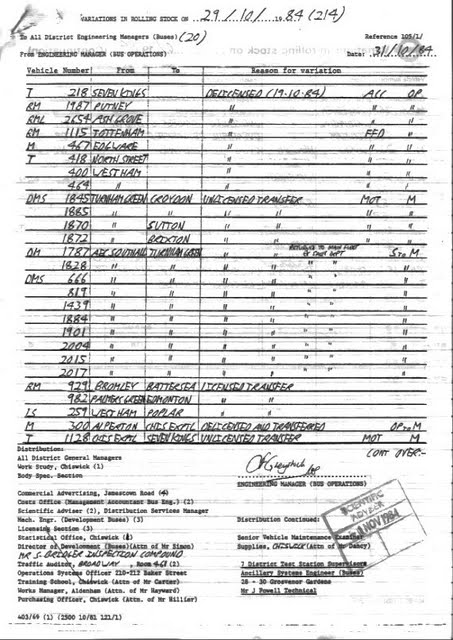 VARIATIONS IN ROLLING STOCK ON 29/10/1984 (214)
To All District Engineering Managers (Buses) (20) Reference 105/1/
From ENGINEERING MANAGER (BUS OPERATIONS) Date: 31/10/84
Vehicle Number From To Reason for variation
T 218 SEVEN KINGS DELICENSED (19-10-84) ACC OP
RM 1987 PUTNEY " " "
RML 2654 ASH GROVE " " "
RM 1115 TOTTENHAM " FFD "
M 467 EDGWARE " " "
T 418 NORTH STREET " " "
400 WEST HAM " " "
464 " " " "
DMS 1845 TURNHAM GREEN CROYDON UNLICENSED TRANSFER MOT M
1885 " " " " " "
1870 " SUTTON " " " "
1872 " BRIXTON " " " "
DM 1787 AEC SOUTHALL TURNHAM GREEN " " RETURNED TO MAIN FLEET S to M
1828 " " " " " " "
DMS 666 " " " " " " "
819 " " " " " " "
1439 " " " " " " "
1884 " " " " " " "
1901 " " " " " " "
2004 " " " " " " "
2015 " " " " " " "
2017 " " " " " " "
RM 929 BROMLEY BATTERSEA LICENSED TRANSFER
982 PALMERS GREEN EDMONTON " "
LS 259 WEST HAM POPLAR " "
M 300 ALPERTON CHIS EXPTL DELICENSED AND TRANSFERRED OP to M
T 1128 CHIS EXPTL SEVEN KINGS UNLICENSED TRANSFER MOT M
CONT OVER:-
Distribution:
All District General Managers
Work Study, Chiswick (1)
Body Spec. Section
ENGINEERING MANAGER (BUS OPERATIONS)
Commercial Advertising, Jamestown Road (4)
Costs Office (Management Accountant Bus Eng.) (2)
Scientific Adviser (2), Distribution Services Manager
Mech. Engr. (Development Buses) (3) Distribution Continued:
Licensing Section (3)
Statistical Office, Chiswick Senior Vehicle Maintenance Examiner
Director of Development (Buses)(Attn of Mr Simon) Supplies, CHISWICK (Attn of Mr Dancy)
MR S. GRINDLER INSPECTION COMPOUND
Traffic Auditor, BROADWAY, Room 463 (2) 7 District Test Station Supervisors
Operations Systems Officer 210-212 Baker Street Ancillary Systems Engineer (Buses)
Training School, Chiswick (Attn of Mr Carter) 28 - 30 Grosvenor Gardens
Works Manager, Aldenham (Attn of Mr Hayward) Mr J Powell Technical
Purchasing Officer, Chiswick (Attn of Mr Hillier)
SCIENTIFIC ADVISER
NOV 1984
403/69 (1) (2500 10/81 121/1)